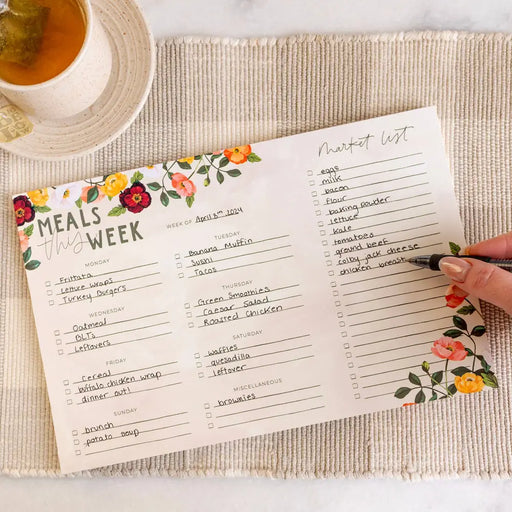 MEALS
this WEEK
WEEK OF April 3rd, 2024
MONDAY
Frittata
Letture Wraps
Turkey Burgers
TUESDAY
Banana Muffin
Sushi
Tacos
WEDNESDAY
Oatmeal
BLTs
Leftovers
THURSDAY
Green Smoothies
Caesar Salad
Roasted Chicken
FRIDAY
Cereal
buffalo chicken wrap
dinner out!
SATURDAY
waffles
quesadilla
leftover
SUNDAY
brunch
potato soup
MISCELLANEOUS
brownies
market list
eggs
milk
bacon
flour
baking powder
lettuce
kale
tomatoes
ground beef
colby jack cheese
chicken breast